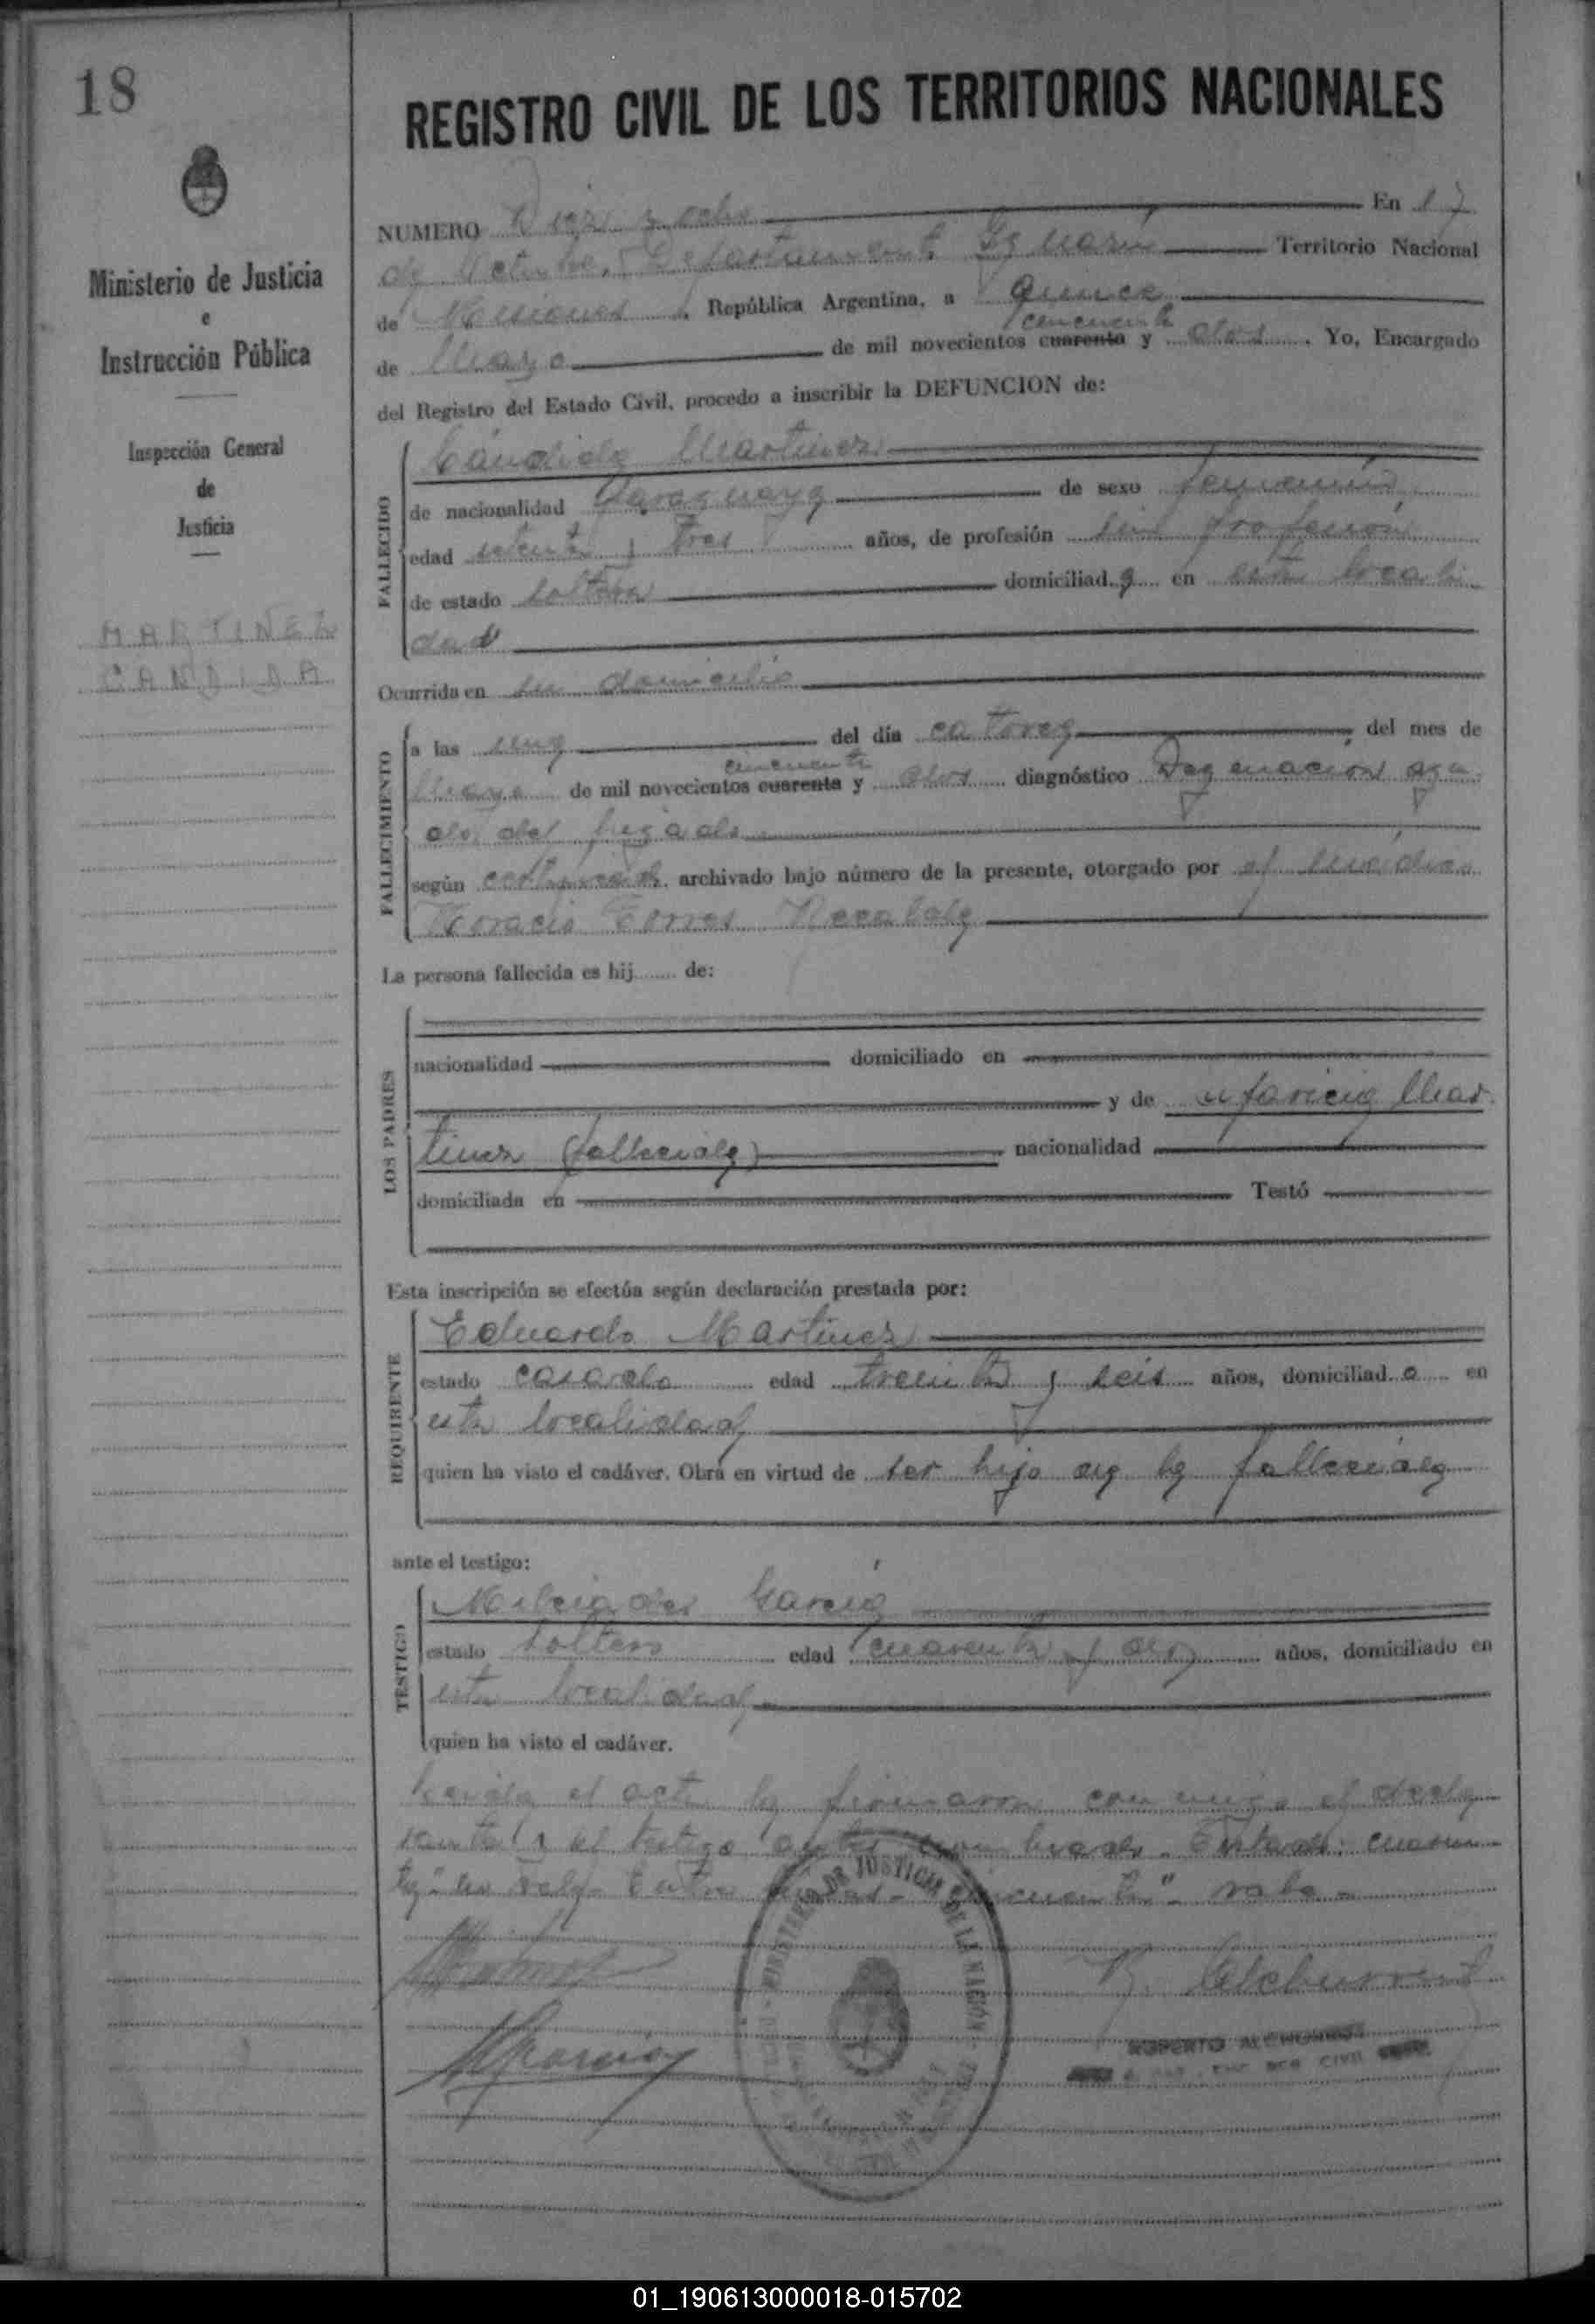 18
REGISTRO CIVIL DE LOS TERRITORIOS NACIONALES
Ministerio de Justicia
e
Instrucción Pública
Inspección General
de
Justicia
MARTINEZ
CANDIDA
NUMERO Diez y ocho En 17
de Octubre, Departamento Iguazú Territorio Nacional
de Misiones, República Argentina, a quince
cincuenta
de Marzo de mil novecientos cuarenta y dos. Yo, Encargado
del Registro del Estado Civil, procedo a inscribir la DEFUNCION de:
FALLECIDO
Cándida Martinez
de nacionalidad Paraguaya de sexo femenino
edad setenta y tres años, de profesión sin profesión
de estado soltera domiciliada en esta locali
dad
Ocurrida en su domicilio
FALLECIMIENTO
a las del día catorce del mes de
cincuenta
Marzo de mil novecientos cuarenta y dos diagnóstico
del higado
según certificado archivado bajo número de la presente, otorgado por el médico
Horacio Torres Recalde
La persona fallecida es hij de:
LOS PADRES
nacionalidad domiciliado en
y de Aparicia Mar
tinez (fallecida) nacionalidad
domiciliada en Testó
Esta inscripción se efectúa según declaración prestada por:
REQUIRENTE
Eduardo Martinez
estado casado edad treinta y seis años, domiciliado en
esta localidad
quien ha visto el cadáver. Obra en virtud de ser hijo de la fallecida
ante el testigo:
TESTIGO
Milciades García
estado soltero edad cuarenta y dos años, domiciliado en
esta localidad
quien ha visto el cadáver.
Leída el acta la firmaron conmigo el decla
rante y el testigo Testado: cuaren
ta" no vale. Entre líneas - "cincuenta" - vale -
MINISTERIO DE JUSTICIA DE LA NACIÓN
ROBERTO
REG CIVIL
01_190613000018-015702